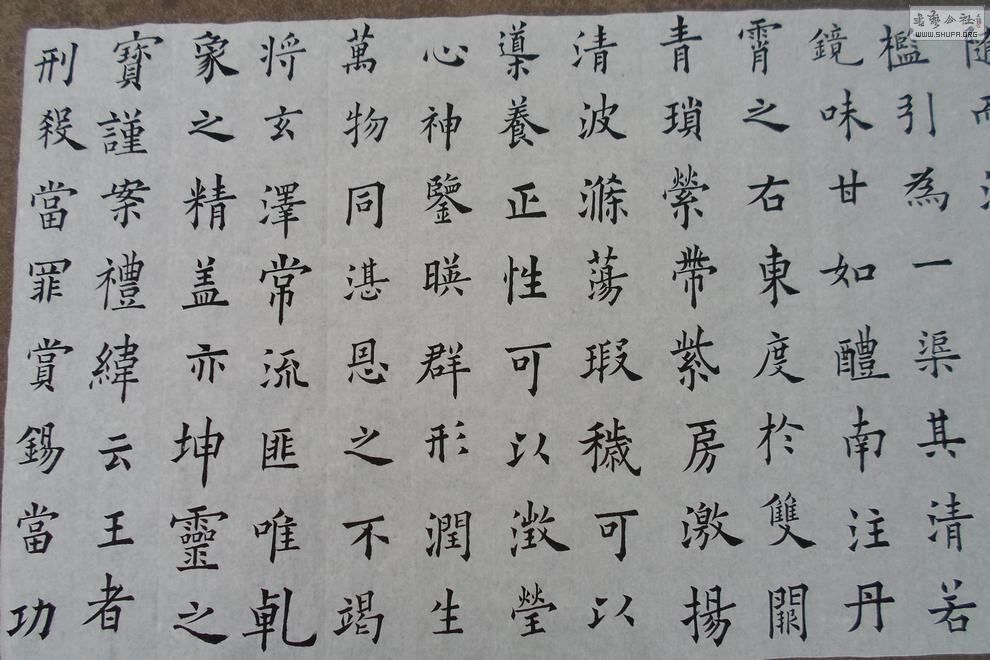 隨而
檻引為一渠其清若
鏡味甘如醴南注丹
霄之右東度於雙闕
青瑣縈帶紫房激揚
清波滌蕩瑕穢可以
導養正性可以澂瑩
心神鑒暎群形潤生
萬物同湛恩之不竭
将玄澤常流匪唯乹
象之精盖亦坤靈之
寶謹案禮緯云王者
刑殺當罪賞錫當功
書藝公社
WWW.SHUFA.ORG